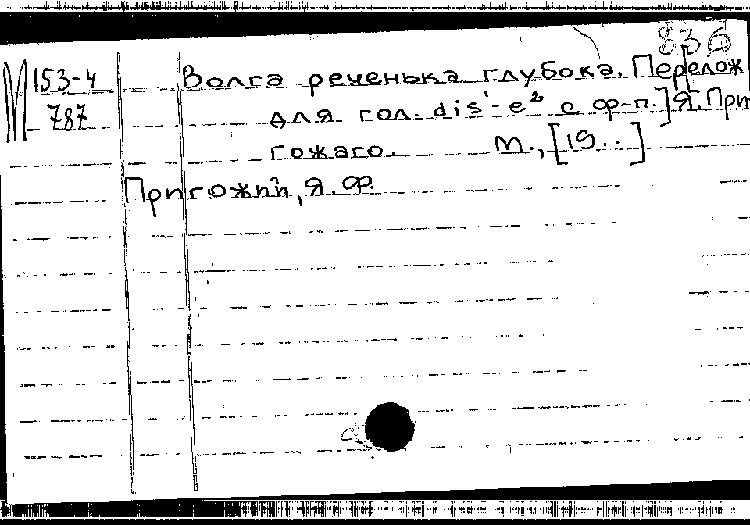 836
М 153-4 Волга реченька глубока. [Перелож
787 для гол. dis¹-e² с ф-п.] Я. При
гожаго. М., [19..]
Пригожий, Я. Ф.